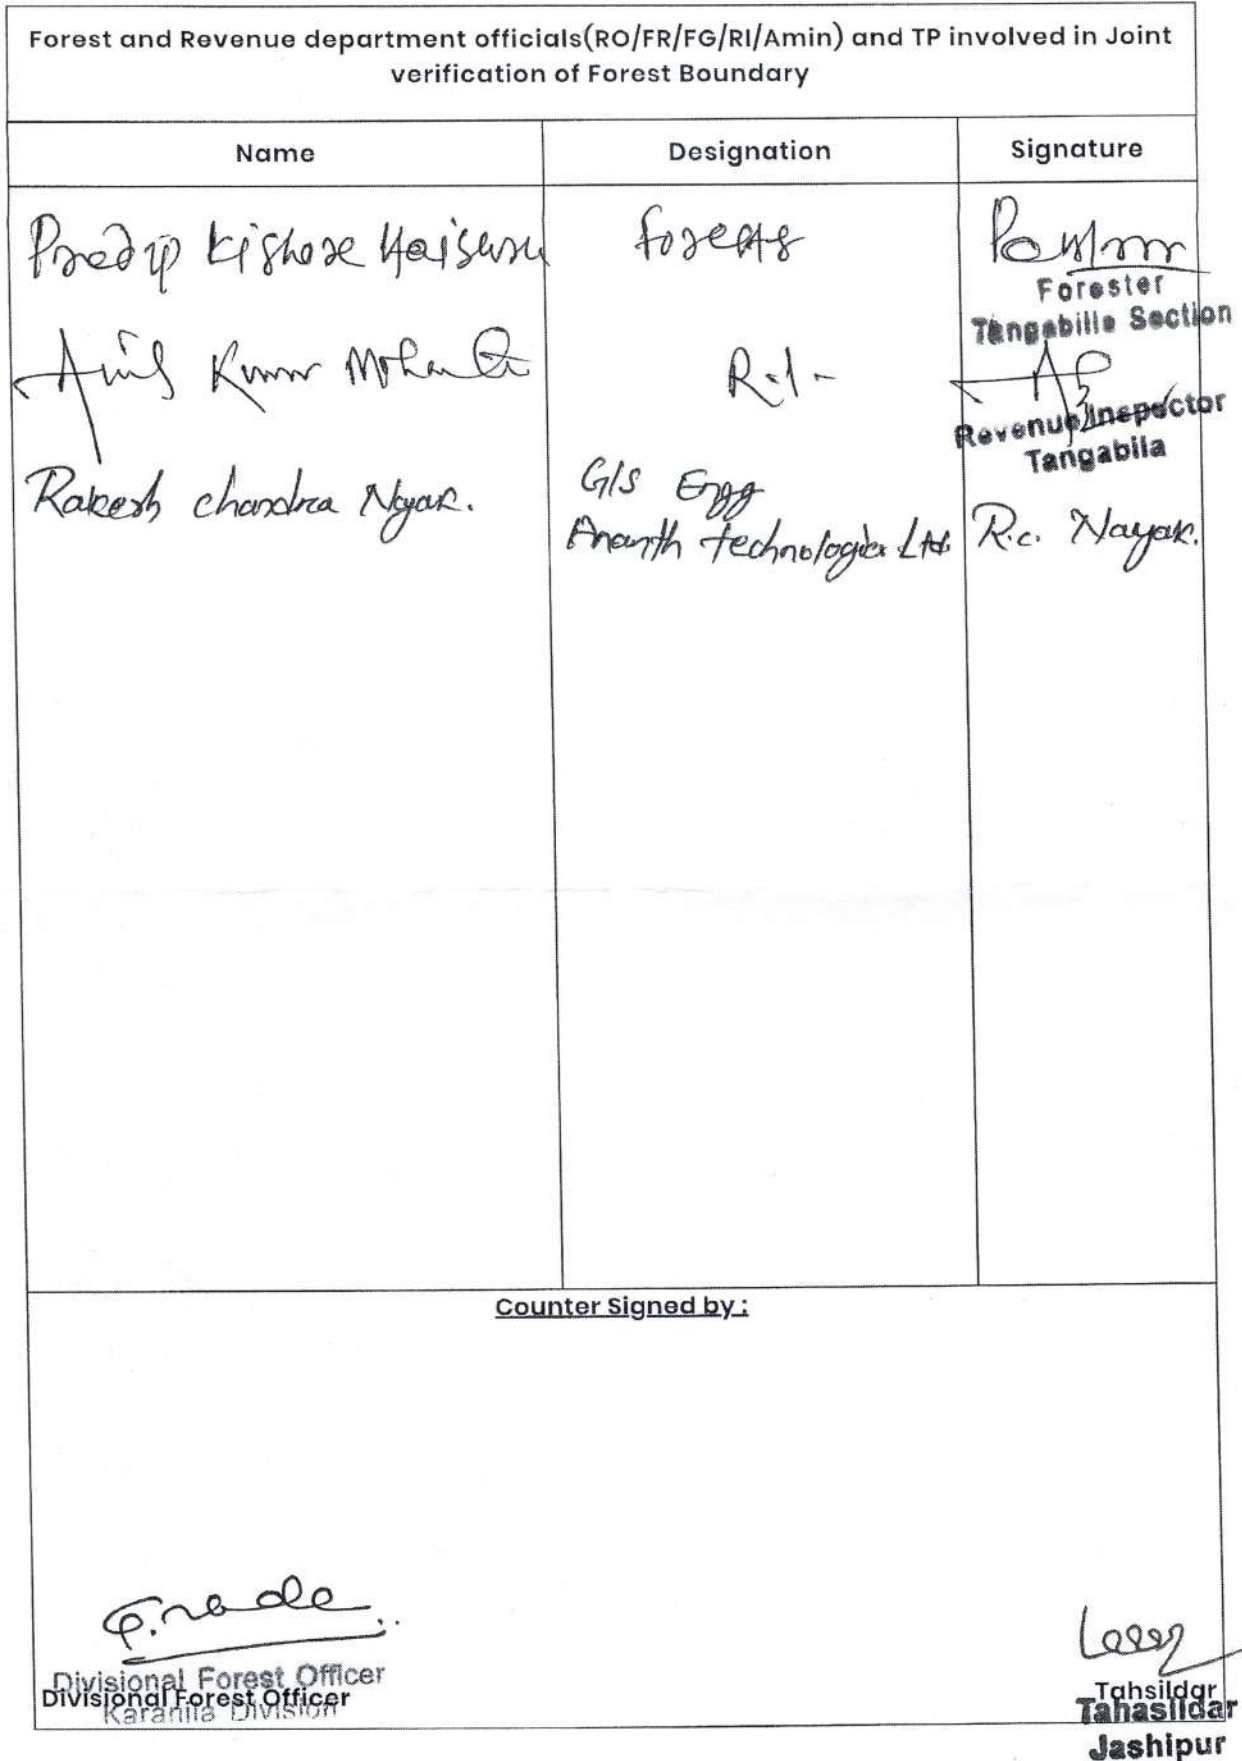 Forest and Revenue department officials(RO/FR/FG/RI/Amin) and TP involved in Joint
verification of Forest Boundary
Name Designation Signature
Pradip Kishore
Forester
Tangabilla Section
Anil Kumar Mohanta R.I.
Revenue Inspector
Tangabila
Rakesh chandra Nayak. GIS Engg
Ananth technologies Ltd. R.c. Nayak.
Counter Signed by :
Divisional Forest Officer
Divisional Forest Officer
Karanjia Division
Tahsildar
Tahasildar
Jashipur